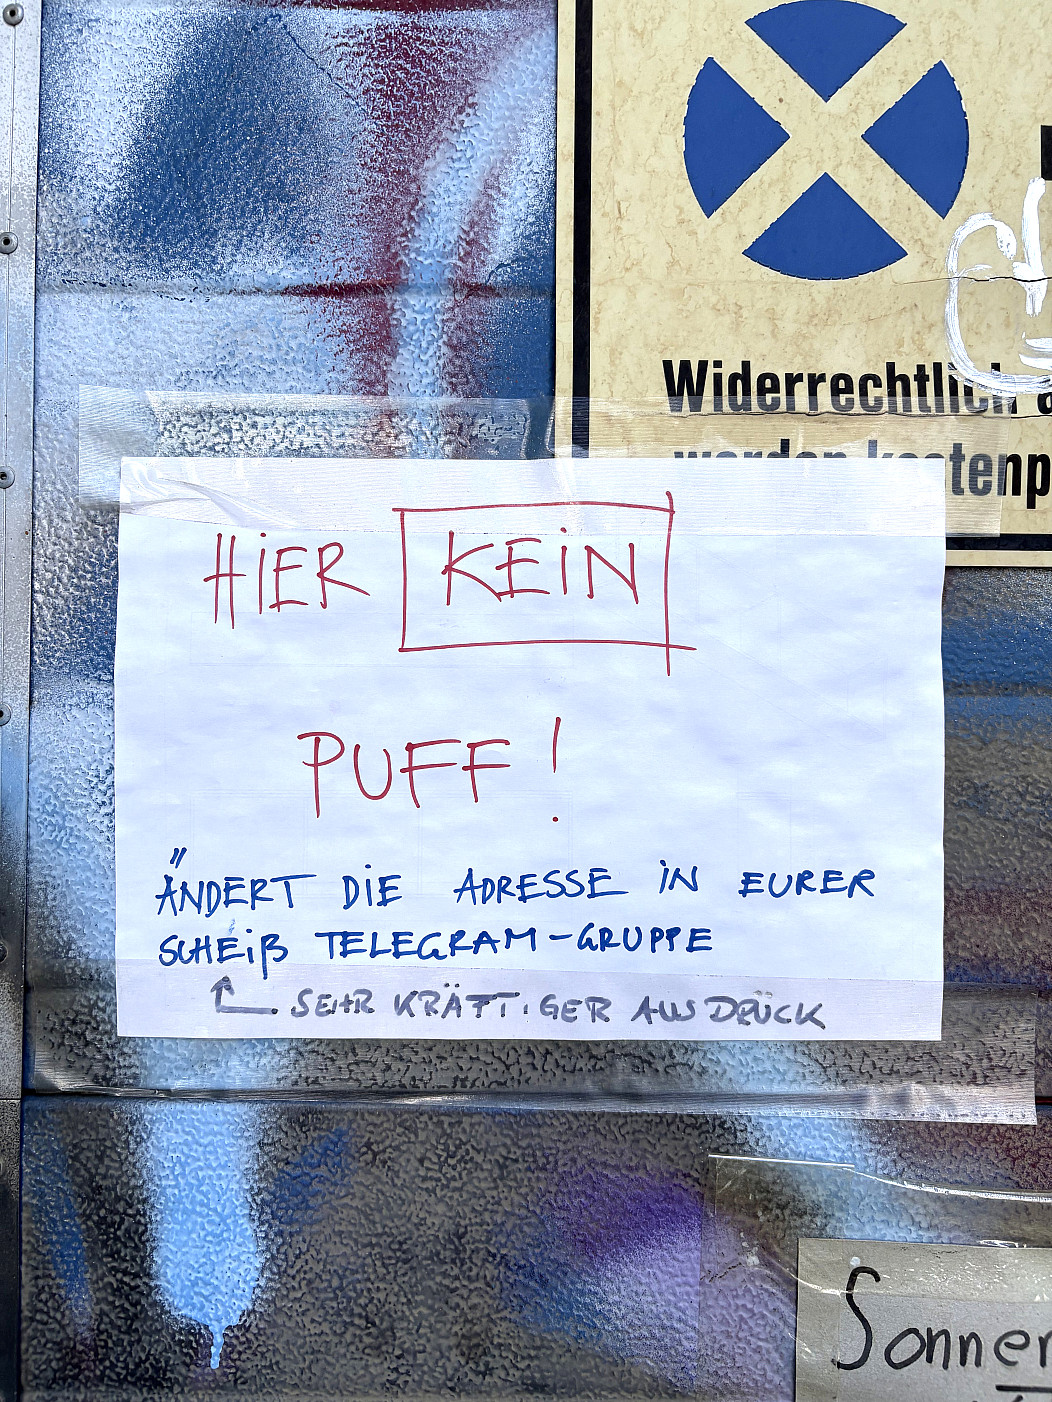 Widerrechtlich
werden kostenp
HIER KEIN
PUFF!
ÄNDERT DIE ADRESSE IN EURER
SCHEIß TELEGRAM-GRUPPE
SEHR KRÄFTIGER AUSDRÜCK
Sonnen